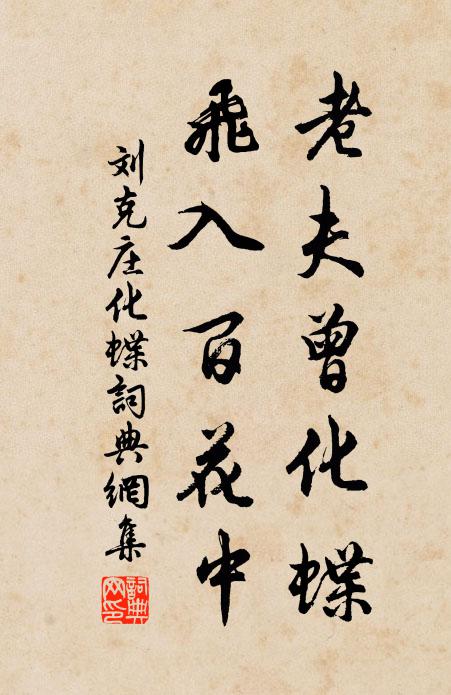 老夫曾化蝶
飛入百花中
刘克庄化蝶詞典網集
詞典網印